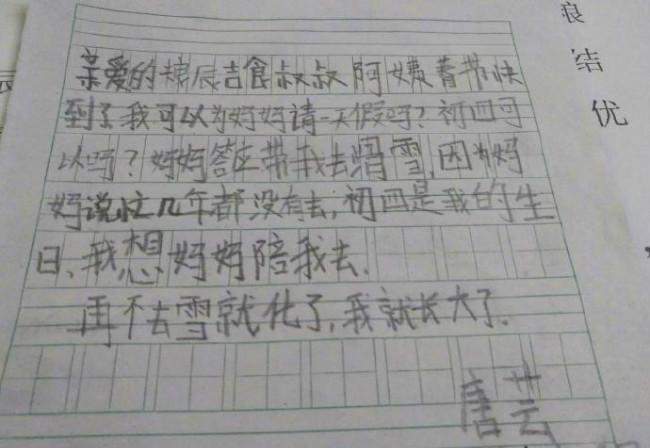 亲爱的棣辰吉食叔叔阿姨春节快
到了我可以为妈妈请一天假吗？初四可
以吗？妈妈答应带我去滑雪,因为妈
妈说忙几年都没有去,初四是我的生
日、我想妈妈陪我去.
再不去雪就化了,我就长大了.
唐芸
浪
结
优